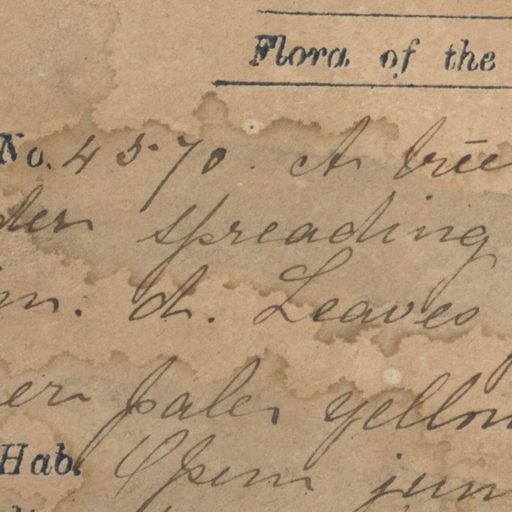 Flora of the
No. 4570. A tree
der spreading
m. d. Leaves
er pale yellow
Hab. Open jun